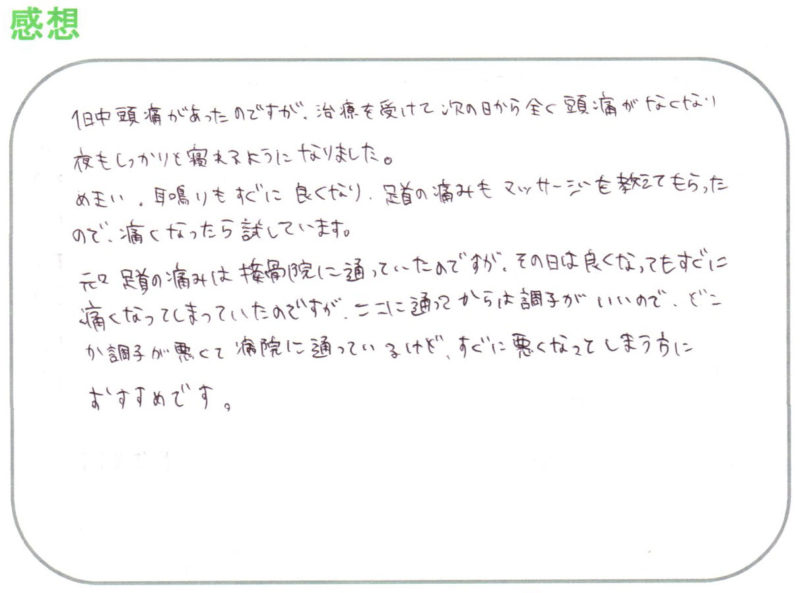 感想
1日中頭痛があったのですが、治療を受けて次の日から全く頭痛がなくなり
夜もしっかりと寝れるようになりました。
めまい、耳鳴りもすぐに良くなり、足首の痛みもマッサージを教えてもらった
ので、痛くなったら試しています。
元々足首の痛みは接骨院に通っていたのですが、その日は良くなってもすぐに
痛くなってしまっていたのですが、ここに通ってからは調子がいいので、どこ
か調子が悪くて病院に通っているけど、すぐに悪くなってしまう方に
おすすめです。